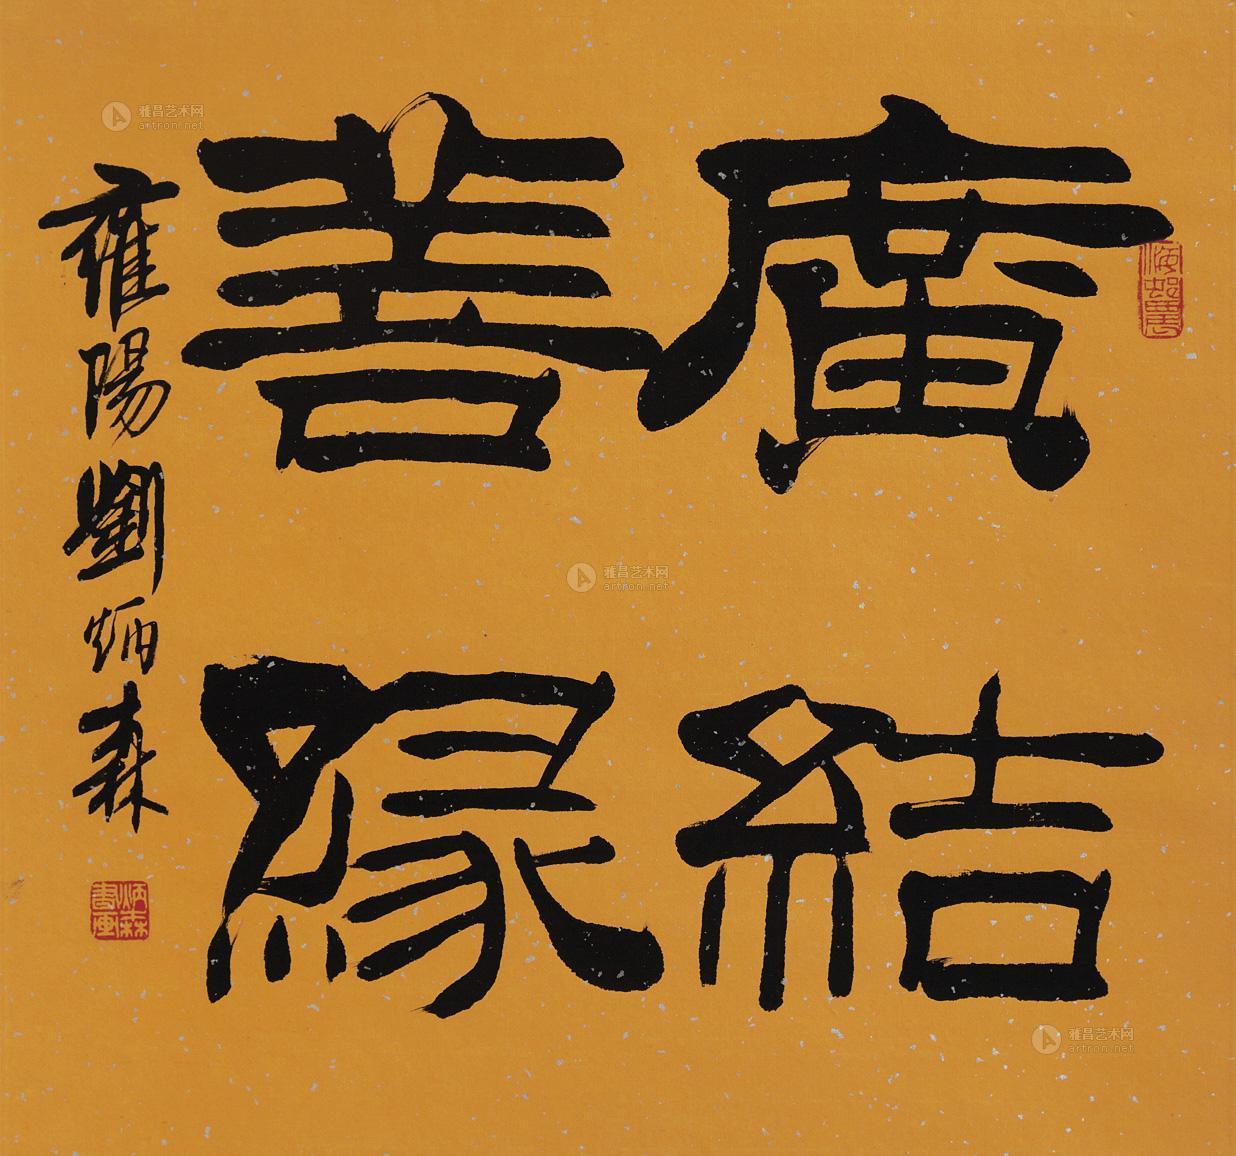 廣結
善緣
雍陽劉炳森
炳森書画
雅昌艺术网
artron.net
雅昌艺术网
artron.net
雅昌艺术网
artron.net